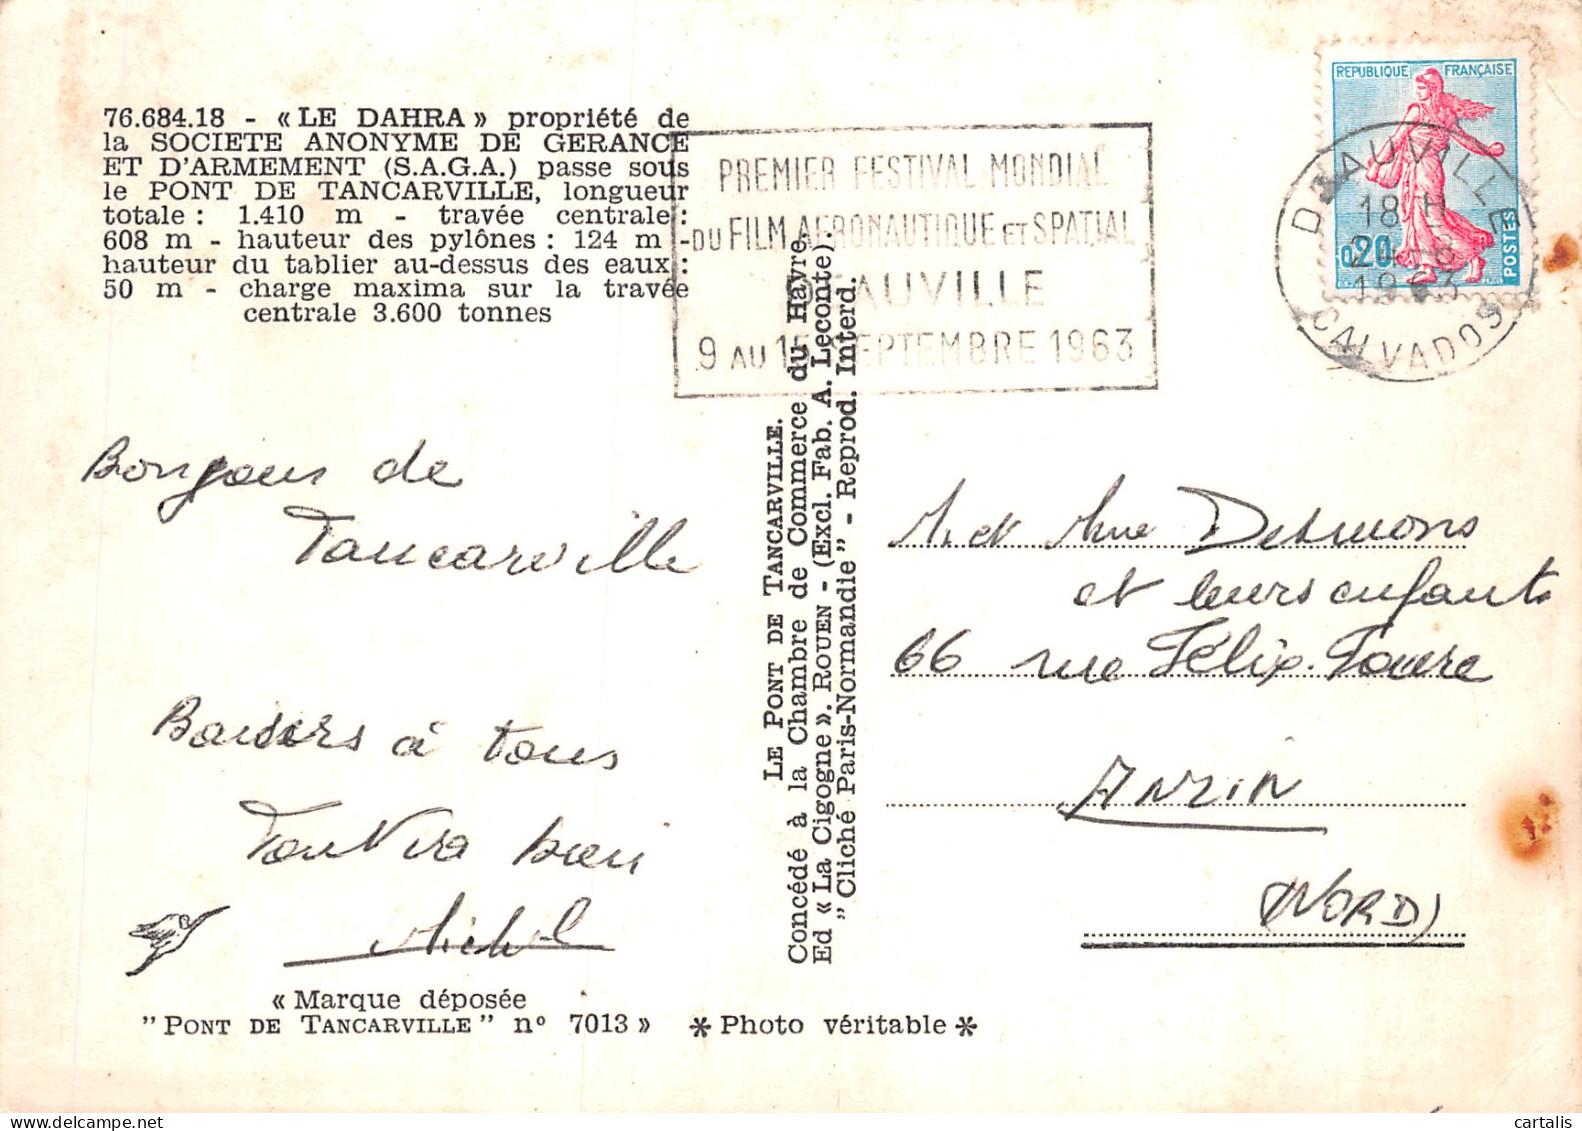 76.684.18 - « LE DAHRA » propriété de
la SOCIETE ANONYME DE GERANCE
ET D'ARMEMENT (S.A.G.A.) passe sous
le PONT DE TANCARVILLE, longueur
totale : 1.410 m - travée centrale :
608 m - hauteur des pylônes : 124 m -
hauteur du tablier au-dessus des eaux :
50 m - charge maxima sur la travée
centrale 3.600 tonnes
PREMIER FESTIVAL MONDIAL
DU FILM AERONAUTIQUE ET SPATIAL
DEAUVILLE
9 AU 15 SEPTEMBRE 1963
REPUBLIQUE FRANÇAISE
0,20
POSTES
DEAUVILLE
18 H
24-8
1963
CALVADOS
Bonjour de
Tancarville
Baisers à tous
Tout va bien
Michel
« Marque déposée
"PONT DE TANCARVILLE" n° 7013 »
* Photo véritable *
LE PONT DE TANCARVILLE.
Concédé à la Chambre de Commerce du Havre.
Ed « La Cigogne ». ROUEN - (Excl. Fab. A. Leconte).
"Cliché Paris-Normandie" - Reprod. Interd.
M. et Mme Desmons
et leurs enfants
66 rue Félix Faure
ANZIN
(NORD)
cartalis